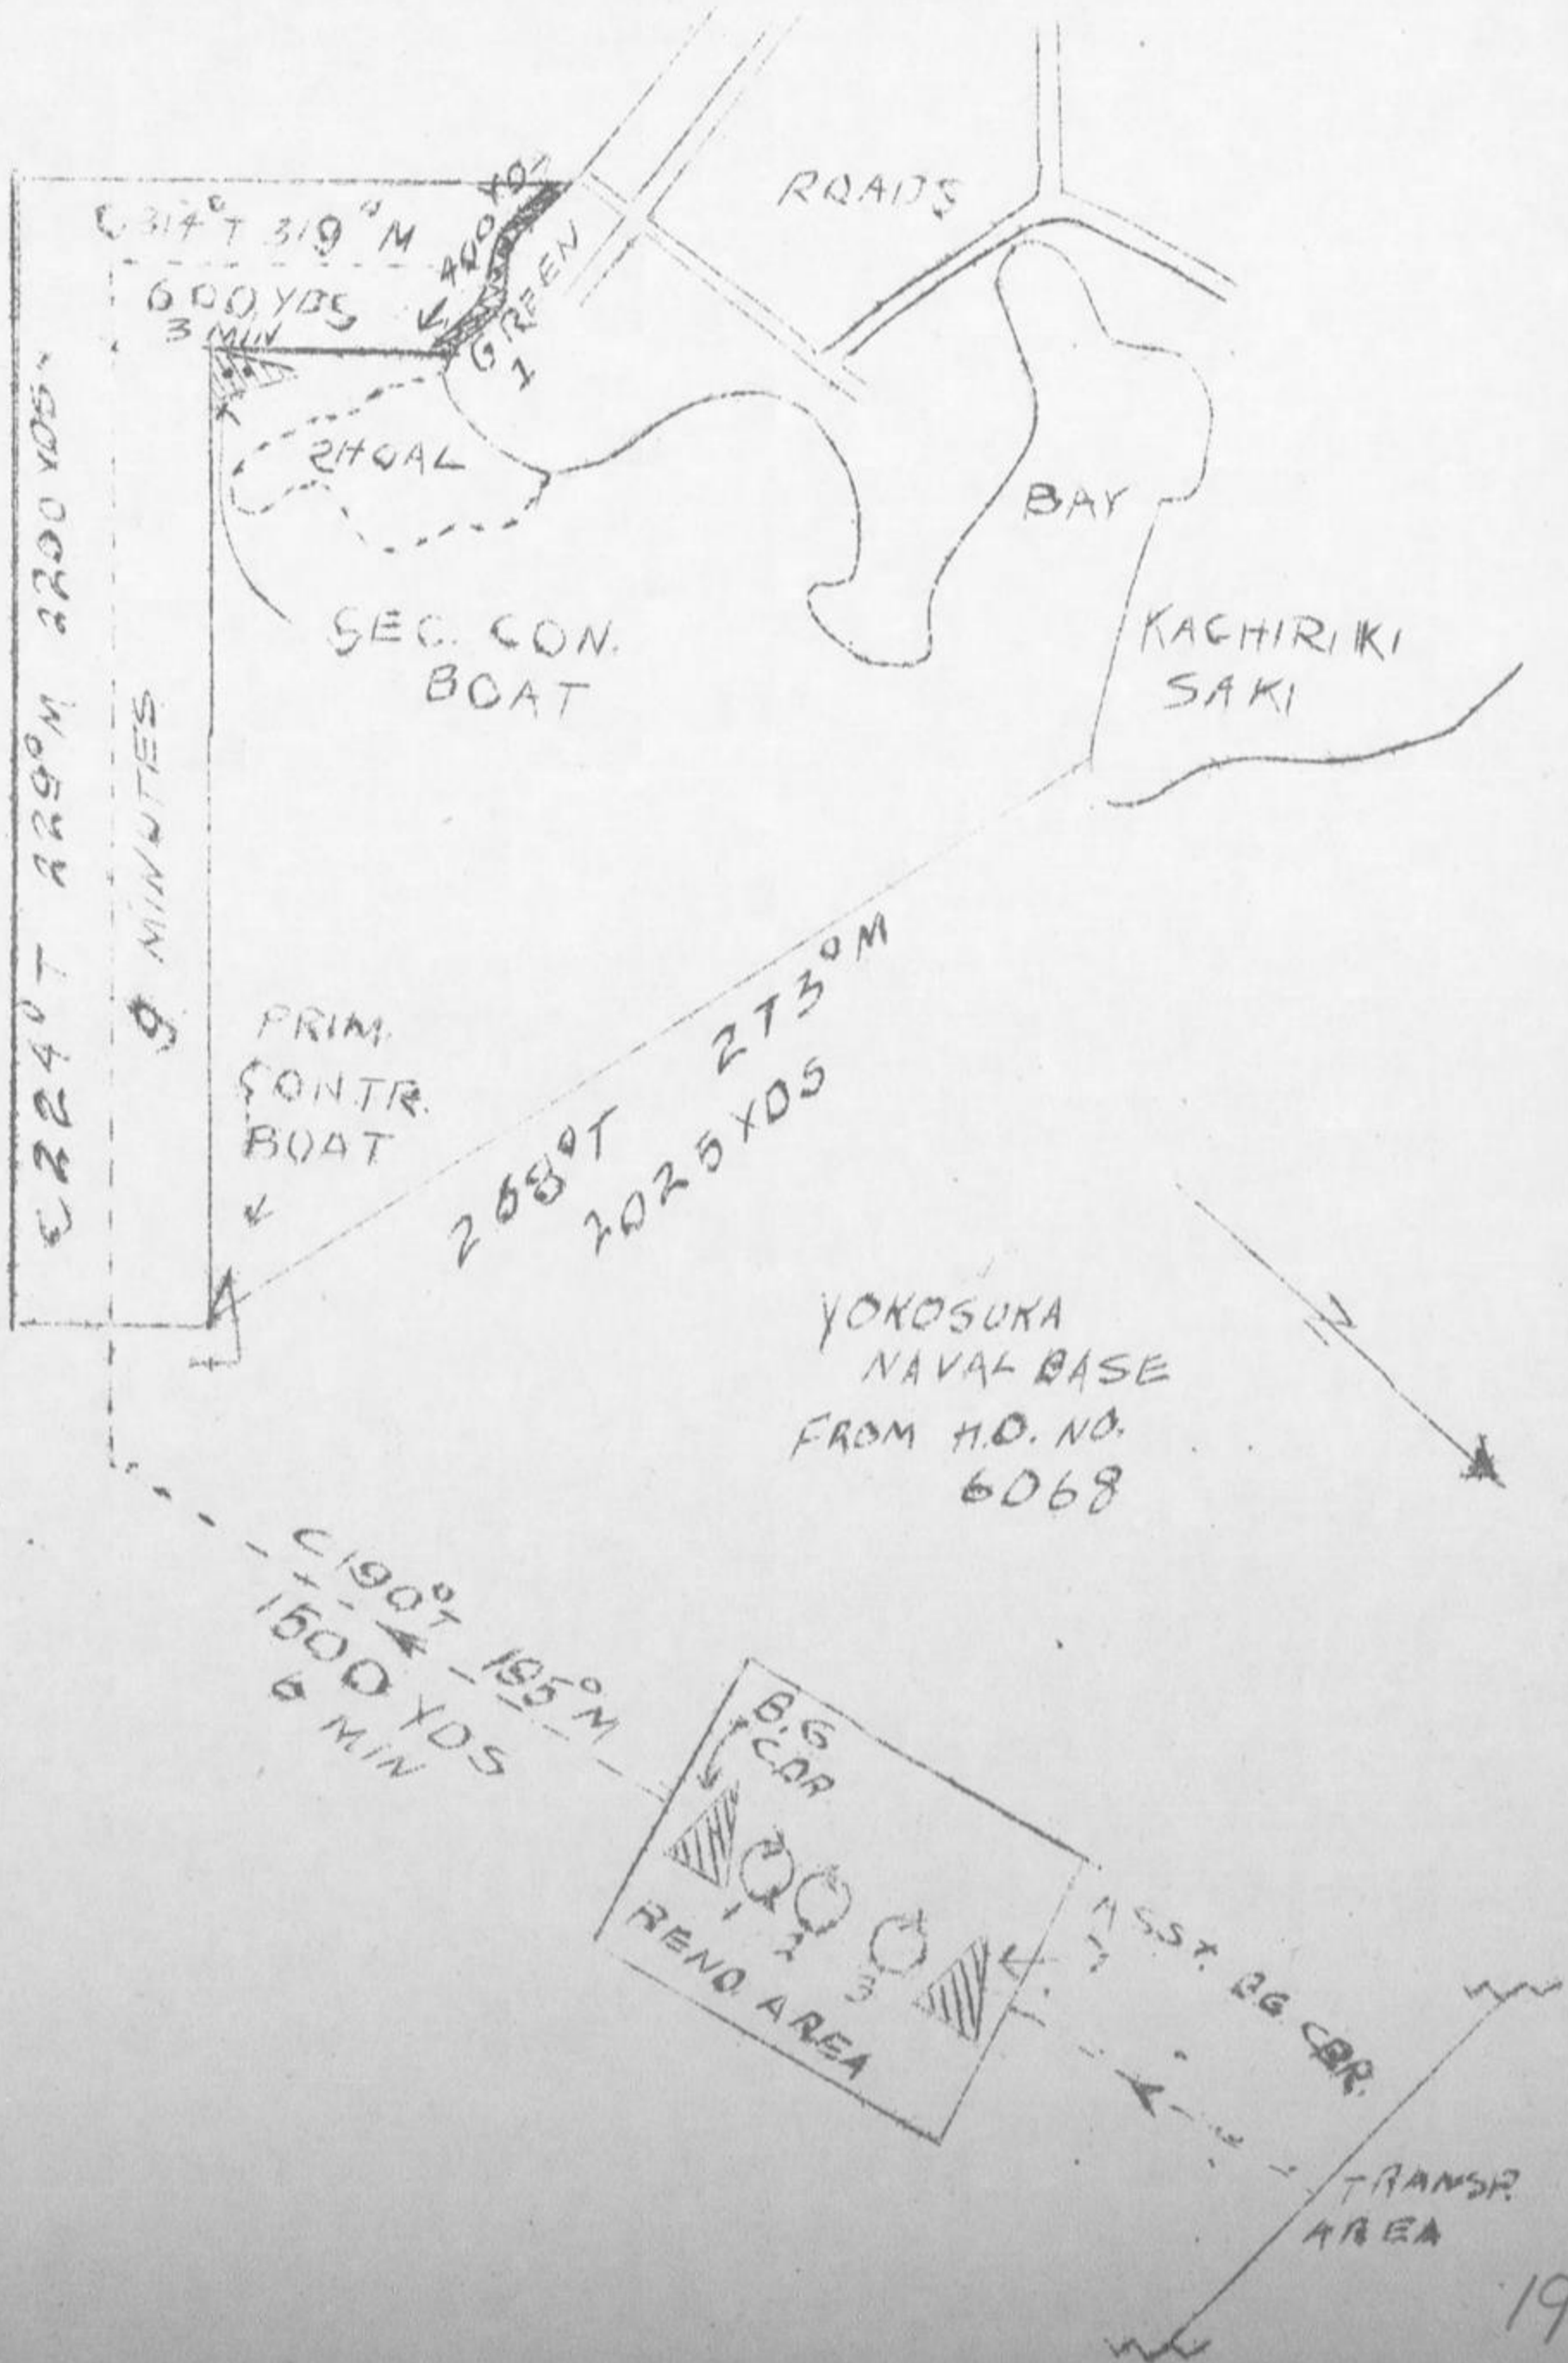 ROADS
C 314°T 319°M
600 YDS
3 MIN
400 YDS
GREEN
1
SHOAL
BAY
SEC. CON.
BOAT
KACHIRIKI
SAKI
C 224°T 229°M 2200 YDS
9 MINUTES
PRIM.
CONTR.
BOAT
268°T 273°M
2025 YDS
N
YOKOSUKA
NAVAL BASE
FROM H.O. NO.
6068
C 190°T 195°M
1500 YDS
6 MIN
B.G
CDR
1 2 3
REND. AREA
ASST. BG CDR.
TRANSP.
AREA
19